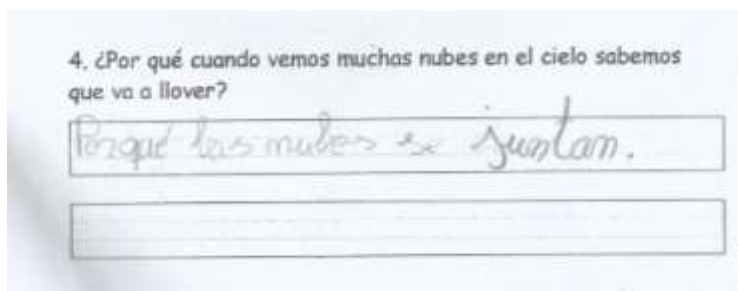 4. ¿Por qué cuando vemos muchas nubes en el cielo sabemos
que va a llover?
Porqué las nubes se juntan.